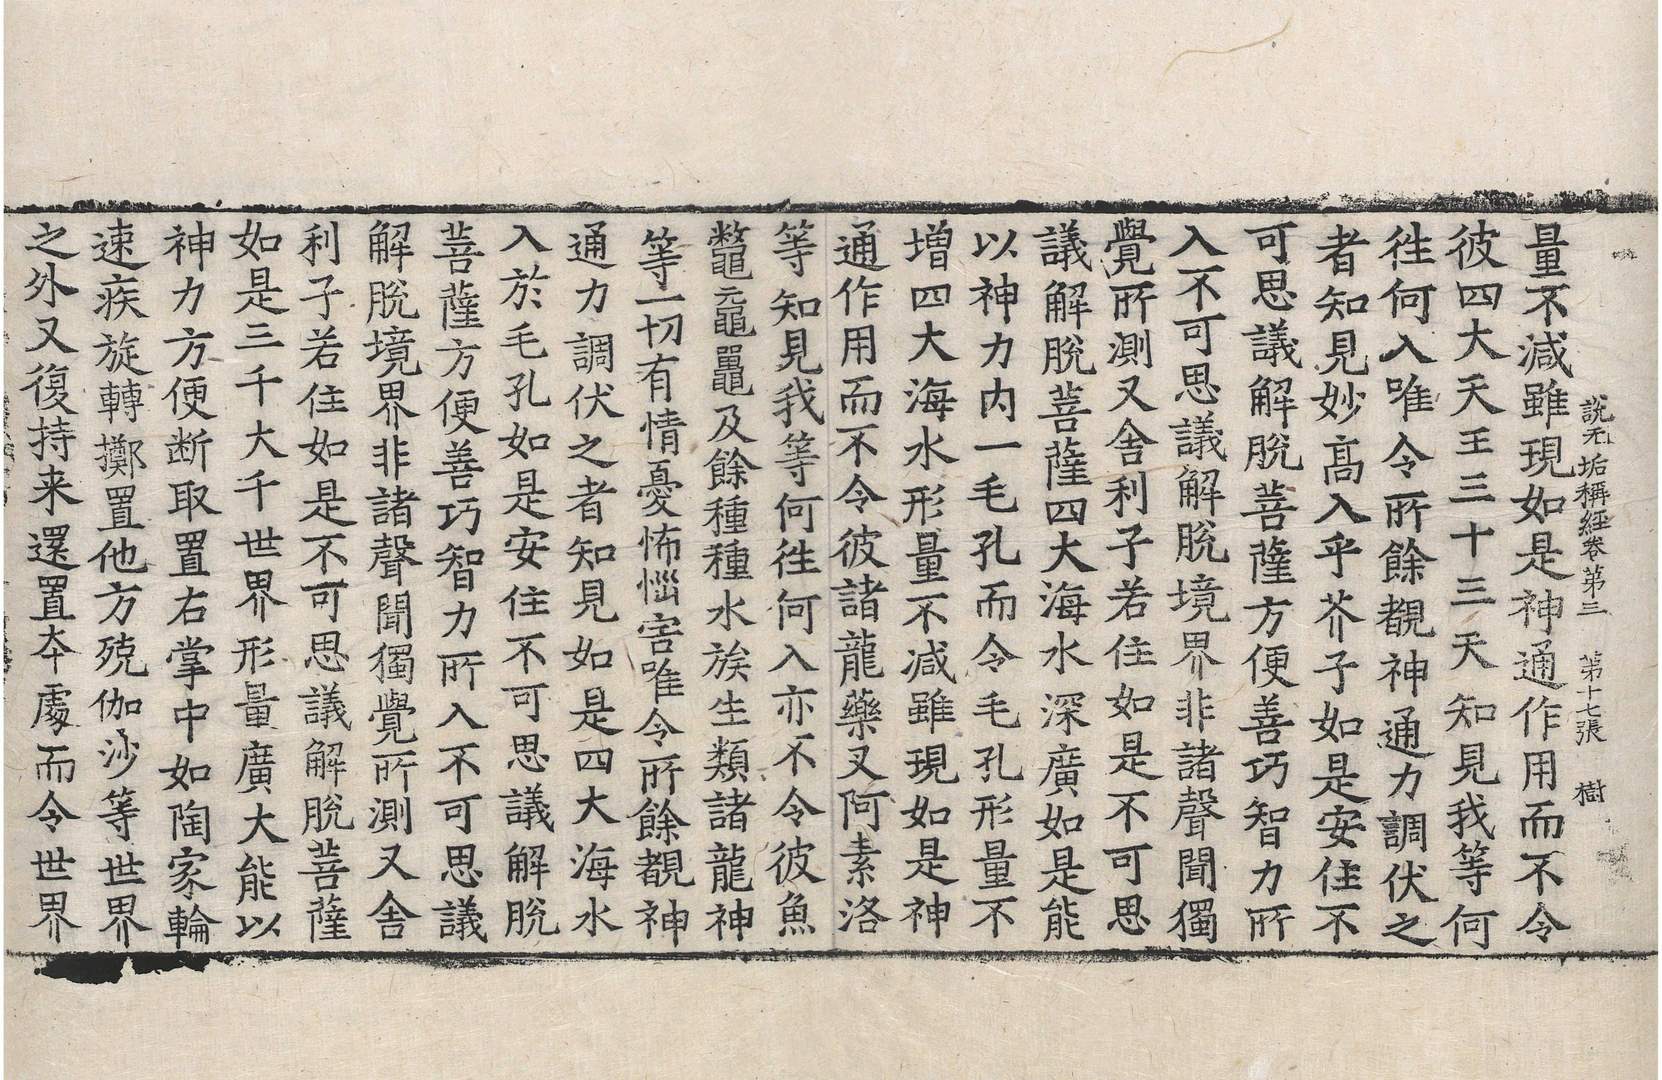 說无垢稱經卷第三 第十七張 樹
量不減雖現如是神通作用而不令
彼四大天王三十三天知見我等何
徃何入唯令所餘覩神通力調伏之
者知見妙髙入乎芥子如是安住不
可思議解脫菩薩方便善巧智力所
入不可思議解脫境界非諸聲聞獨
覺所測又舍利子若住如是不可思
議解脫菩薩四大海水深廣如是能
以神力內一毛孔而令毛孔形量不
增四大海水形量不減雖現如是神
通作用而不令彼諸龍藥叉阿素洛
等知見我等何徃何入亦不令彼魚
鼈黿鼉及餘種種水族生類諸龍神
等一切有情憂怖惱害唯令所餘覩神
通力調伏之者知見如是四大海水
入於毛孔如是安住不可思議解脫
菩薩方便善巧智力所入不可思議
解脫境界非諸聲聞獨覺所測又舍
利子若住如是不可思議解脫菩薩
如是三千大千世界形量廣大能以
神力方便断取置右掌中如陶家輪
速疾旋轉擲置他方殑伽沙等世界
之外又復持来還置夲處而令世界